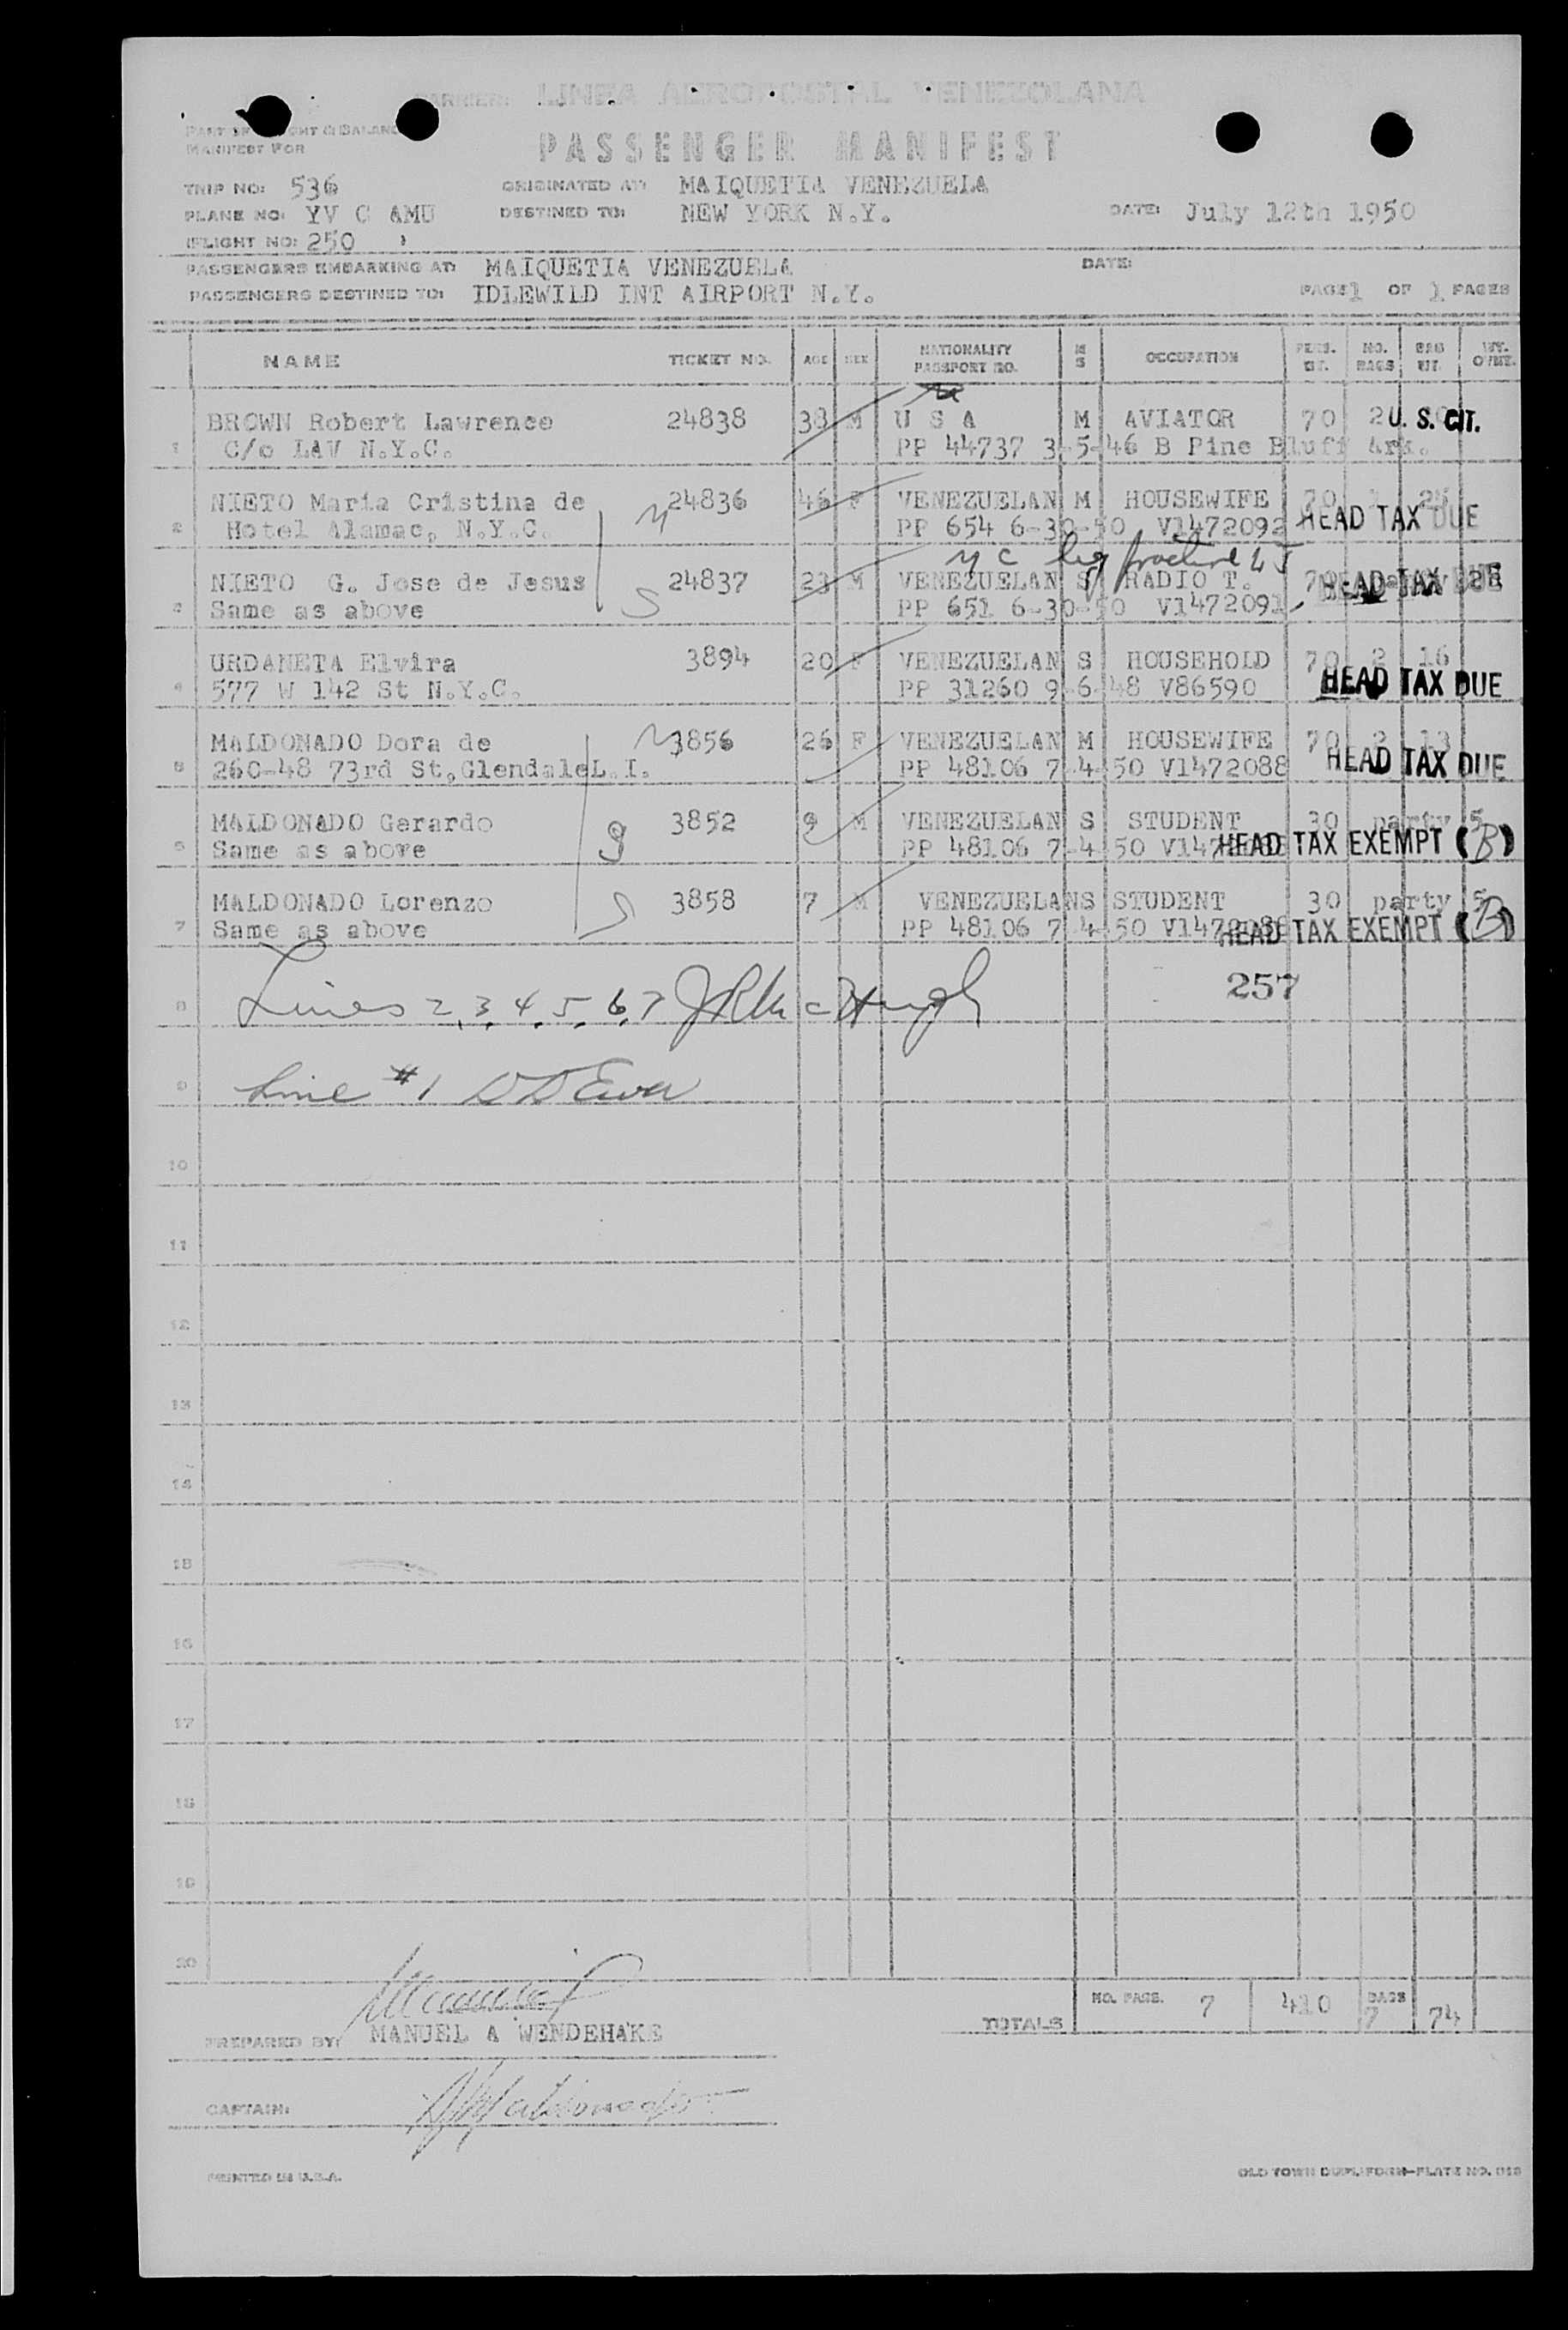 CARRIER: LINEA AEROPOSTAL VENEZOLANA
PART OF WEIGHT & BALANCE
MANIFEST FOR
PASSENGER MANIFEST
TRIP NO: 536 ORIGINATED AT: MAIQUETIA VENEZUELA
PLANE NO: YV C AMU DESTINED TO: NEW YORK N.Y. DATE: July 12th 1950
FLIGHT NO: 250
PASSENGERS EMBARKING AT: MAIQUETIA VENEZUELA DATE:
PASSENGERS DESTINED TO: IDLEWILD INT AIRPORT N.Y. PAGE 1 OF 1 PAGES
NAME TICKET NO. AGE SEX NATIONALITY PASSPORT NO. M S OCCUPATION PERS. WT. NO. BAGS BAG WT. WT. OTHE.
BROWN Robert Lawrence 24838 38 M U S A M AVIATOR 70 2 U. S. CIT.
1 C/o LAV N.Y.C. PP 44737 3-5-46 B Pine Bluff Ark.
NIETO Maria Cristina de M 24836 46 F VENEZUELAN M HOUSEWIFE 70 25
2 Hotel Alamac, N.Y.C. PP 654 6-30-50 V1472092 HEAD TAX DUE
leg fracture
NIETO G. Jose de Jesus S 24837 23 M VENEZUELAN S RADIO T. 70 HEAD TAX DUE
3 Same as above PP 651 6-30-50 V1472091
URDANETA Elvira 3894 20 F VENEZUELAN S HOUSEHOLD 70 2 16
4 577 W 142 St N.Y.C. PP 31260 9-6-48 V86590 HEAD TAX DUE
MALDONADO Dora de 3856 26 F VENEZUELAN M HOUSEWIFE 70 2 13
5 260-48 73rd St,GlendaleL.I. PP 48106 7-4-50 V1472088 HEAD TAX DUE
MALDONADO Gerardo 3852 9 M VENEZUELAN S STUDENT 30 party 5
6 Same as above PP 48106 7-4-50 V1472088 HEAD TAX EXEMPT (B)
MALDONADO Lorenzo S 3858 7 M VENEZUELANS STUDENT 30 party 5
7 Same as above PP 48106 7-4-50 V1472088 HEAD TAX EXEMPT (B)
257
8 Lines 2,3,4,5,6,7 JR McHugh
9 Line #1
10
11
12
13
14
15
16
17
18
19
20
TOTALS NO. PASS. 7 410 BAGS 7 74
PREPARED BY: MANUEL A WENDEHAKE
CAPTAIN:
PRINTED IN U.S.A. OLD TOWN DUPLIFORM-PLATE NO.